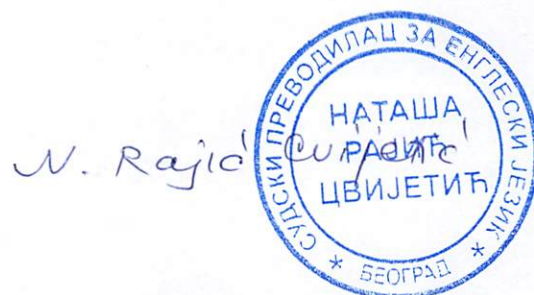 N. Rajić Cvijetić
СУДСКИ ПРЕВОДИЛАЦ ЗА ЕНГЛЕСКИ ЈЕЗИК
НАТАША
РАЈИЋ
ЦВИЈЕТИЋ
* БЕОГРАД *